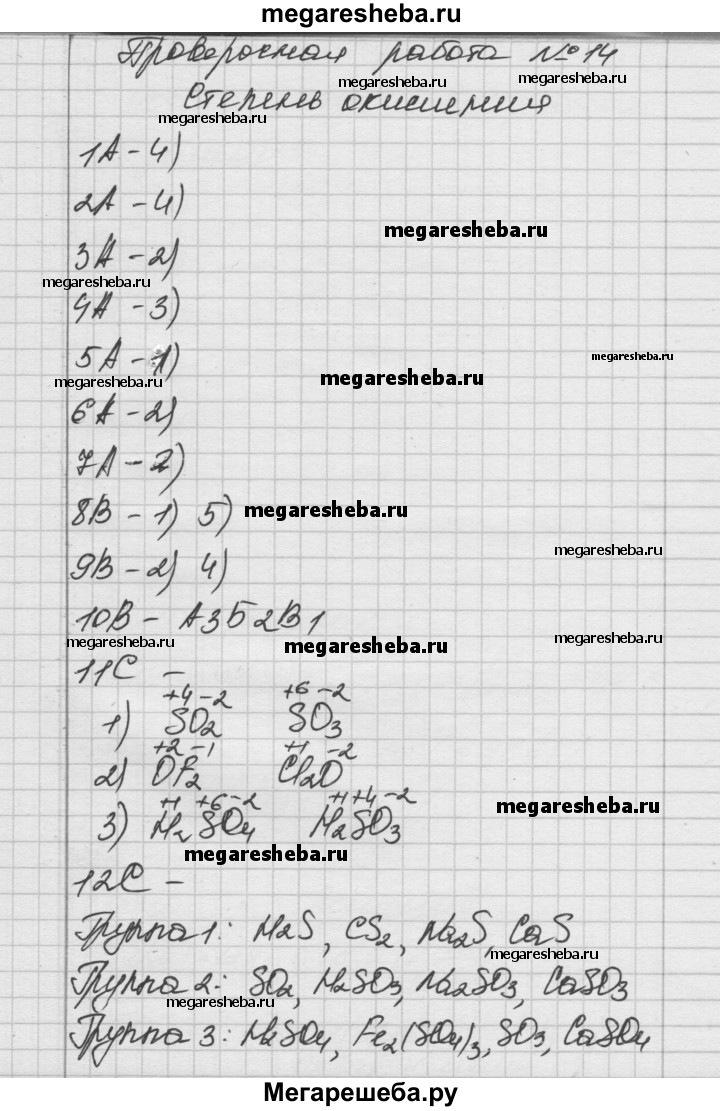 megaresheba.ru
Проверочная работа №14
megaresheba.ru megaresheba.ru
Степень окисления
megaresheba.ru
1А - 4)
2А - 4)
megaresheba.ru
3А - 2)
megaresheba.ru
4А - 3)
5А - 1)
megaresheba.ru
megaresheba.ru
megaresheba.ru
6А - 2)
7А - 2)
8В - 1) 5)
megaresheba.ru
megaresheba.ru
9В - 2) 4)
10В - А3Б2В1
megaresheba.ru
megaresheba.ru
megaresheba.ru
11С -
+4 -2 +6 -2
1) SO2 SO3
+2 -1 +1 -2
2) OF2 Cl2O
+1 +6 -2 +1 +4 -2
3) H2SO4 H2SO3
megaresheba.ru
megaresheba.ru
12С -
Группа 1: H2S, CS2, Na2S, CaS
megaresheba.ru
Группа 2: SO2, H2SO3, Na2SO3, CaSO3
megaresheba.ru
Группа 3: H2SO4, Fe2(SO4)3, SO3, CaSO4
Мегарешеба.ру